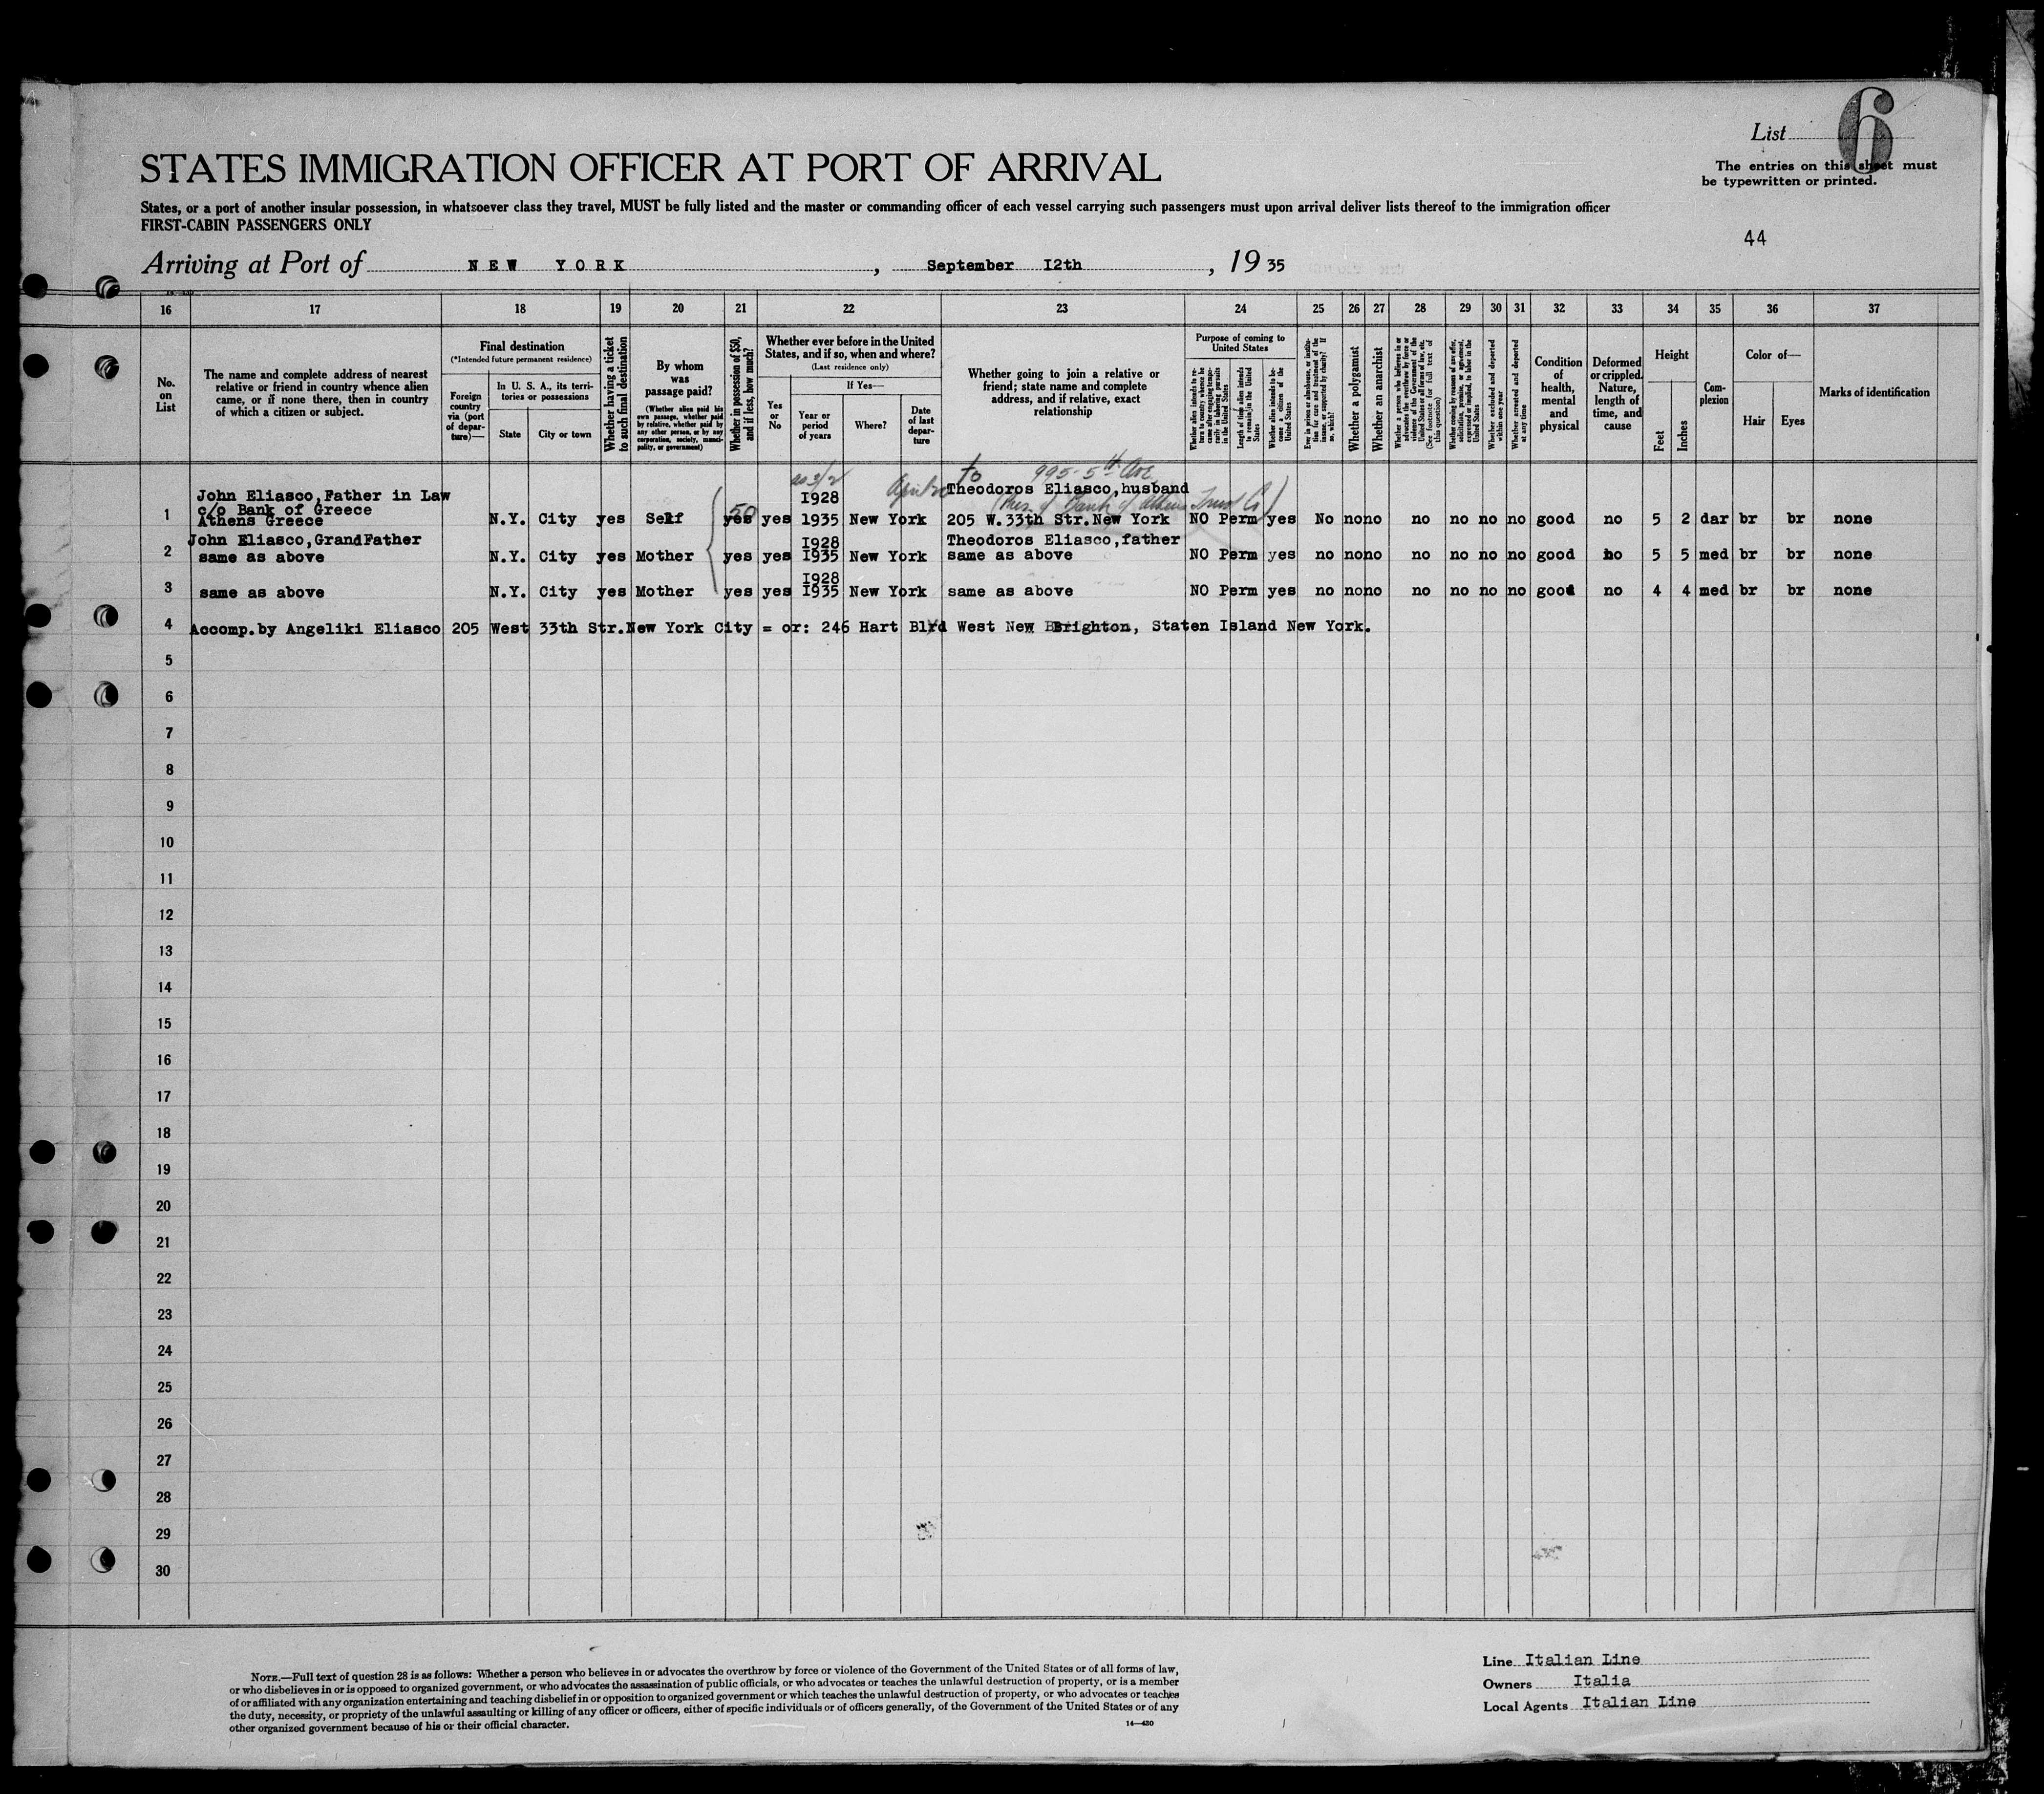 List 6
The entries on this sheet must
be typewritten or printed.
STATES IMMIGRATION OFFICER AT PORT OF ARRIVAL
States, or a port of another insular possession, in whatsoever class they travel, MUST be fully listed and the master or commanding officer of each vessel carrying such passengers must upon arrival deliver lists thereof to the immigration officer
FIRST-CABIN PASSENGERS ONLY
44
Arriving at Port of NEW YORK, September I2th, 1935
16 17 18 19 20 21 22 23 24 25 26 27 28 29 30 31 32 33 34 35 36 37
No.
on
List
The name and complete address of nearest
relative or friend in country whence alien
came, or if none there, then in country
of which a citizen or subject.
Final destination
(*Intended future permanent residence)
Foreign
country
via (port
of depar-
ture)—
In U. S. A., its terri-
tories or possessions
State
City or town
Whether having a ticket
to such final destination
By whom
was
passage paid?
(Whether alien paid his
own passage, whether paid
by relative, whether paid by
any other person, or by any
corporation, society, munici-
pality, or government)
Whether in possession of $50,
and if less, how much?
Whether ever before in the United
States, and if so, when and where?
(Last residence only)
Yes
or
No
If Yes—
Year or
period
of years
Where?
Date
of last
depar-
ture
Whether going to join a relative or
friend; state name and complete
address, and if relative, exact
relationship
Purpose of coming to
United States
Length of time alien intends
to remain in the United
States
Whether alien intends to be-
come a citizen of the
United States
Whether a polygamist
Whether an anarchist
Whether excluded and deported
within one year
Whether arrested and deported
at any time
Condition
of
health,
mental
and
physical
Deformed
or crippled.
Nature,
length of
time, and
cause
Height
Feet
Inches
Com-
plexion
Color of—
Hair
Eyes
Marks of identification
April 20 to 995-5th Ave.
John Eliasco, Father in Law I928 Theodoros Eliasco, husband
c/o Bank of Greece 50 (Pres. of Bank of Athens Trust Co)
1 Athens Greece N.Y. City yes Self yes yes 1935 New York 205 W.33th Str.New York NO Perm yes No no no no no no no good no 5 2 dar br br none
John Eliasco, GrandFather I928 Theodoros Eliasco, father
2 same as above N.Y. City yes Mother yes yes I935 New York same as above NO Perm yes no no no no no no no good no 5 5 med br br none
I928
3 same as above N.Y. City yes Mother yes yes I935 New York same as above NO Perm yes no no no no no no no good no 4 4 med br br none
4 Accomp.by Angeliki Eliasco 205 West 33th Str.New York City = or: 246 Hart Blvd West New Brighton, Staten Island New York.
5
6
7
8
9
10
11
12
13
14
15
16
17
18
19
20
21
22
23
24
25
26
27
28
29
30
NOTE.—Full text of question 28 is as follows: Whether a person who believes in or advocates the overthrow by force or violence of the Government of the United States or of all forms of law,
or who disbelieves in or is opposed to organized government, or who advocates the assassination of public officials, or who advocates or teaches the unlawful destruction of property, or is a member
of or affiliated with any organization entertaining and teaching disbelief in or opposition to organized government or which teaches the unlawful destruction of property, or who advocates or teaches
the duty, necessity, or propriety of the unlawful assaulting or killing of any officer or officers, either of specific individuals or of officers generally, of the Government of the United States or of any
other organized government because of his or their official character.
14—430
Line Italian Line
Owners Italia
Local Agents Italian Line